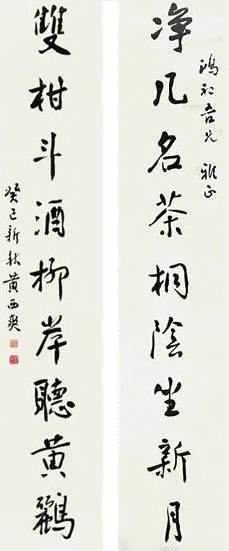 净几名茶桐陰坐新月
鴻初吾兄雅正
雙柑斗酒柳岸聽黄鸝
癸巳新秋黄西爽